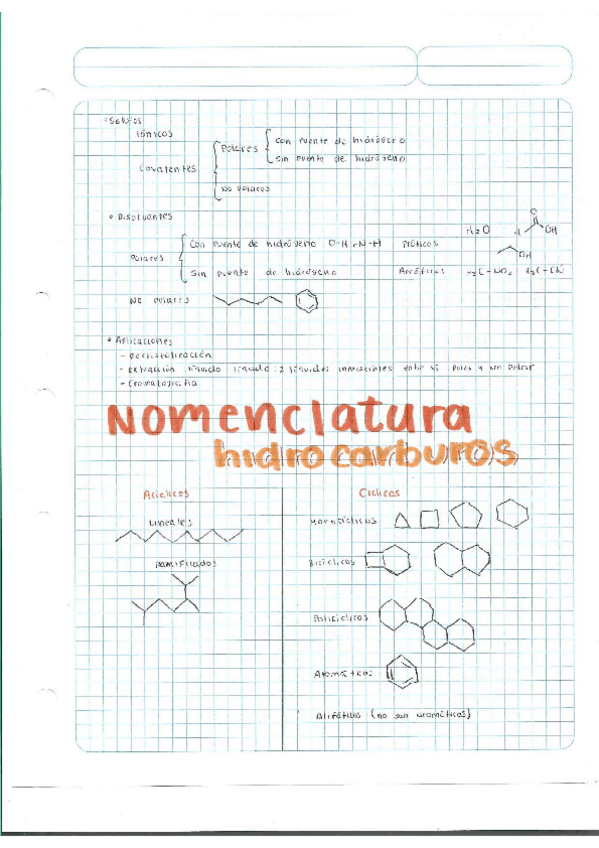 • Solutos
Iónicos
Covalentes
Polares
Con puente de hidrógeno
Sin puente de hidrógeno
No polares
• Disolventes
Polares
Con puente de hidrógeno O-H, N-H Próticos H₂O OH
OH
Sin puente de hidrógeno H₃C-NO₂ H₃C-CN
No polares
• Aplicaciones
- Recristalización
- extracción líquido líquido: 2 líquidos inmiscibles entre sí
- Cromatografía
Nomenclatura
hidrocarburos
Acíclicos
Lineales
Ramificados
Cíclicos
Monocíclicos
Bicíclicos
Policíclicos
Aromáticos
Alifáticos (no son aromáticos)